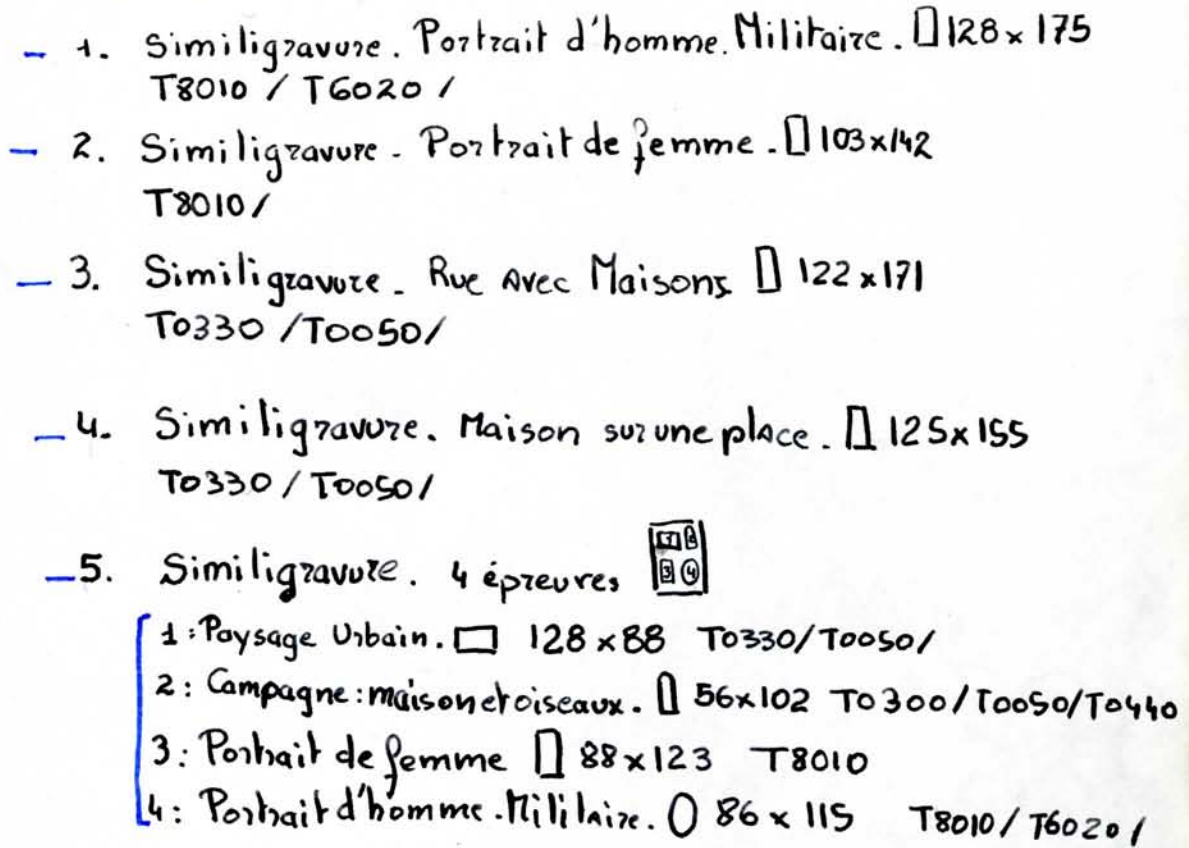 - 1. Similigravure. Portrait d'homme. Militaire. ▯ 128 x 175
T8010 / T6020 /
- 2. Similigravure - Portrait de femme. ▯ 103 x 142
T8010 /
- 3. Similigravure - Rue Avec Maisons ▯ 122 x 171
T0330 / T0050 /
- 4. Similigravure. Maison sur une place. ▯ 125 x 155
T0330 / T0050 /
- 5. Similigravure. 4 épreuves 1 2 3 4
1 : Paysage Urbain. ▭ 128 x 88 T0330 / T0050 /
2 : Campagne : maison et oiseaux. ▯ 56 x 102 T0300 / T0050 / T0440
3 : Portrait de femme ▯ 88 x 123 T8010
4 : Portrait d'homme. Militaire. ⬯ 86 x 115 T8010 / T6020 /